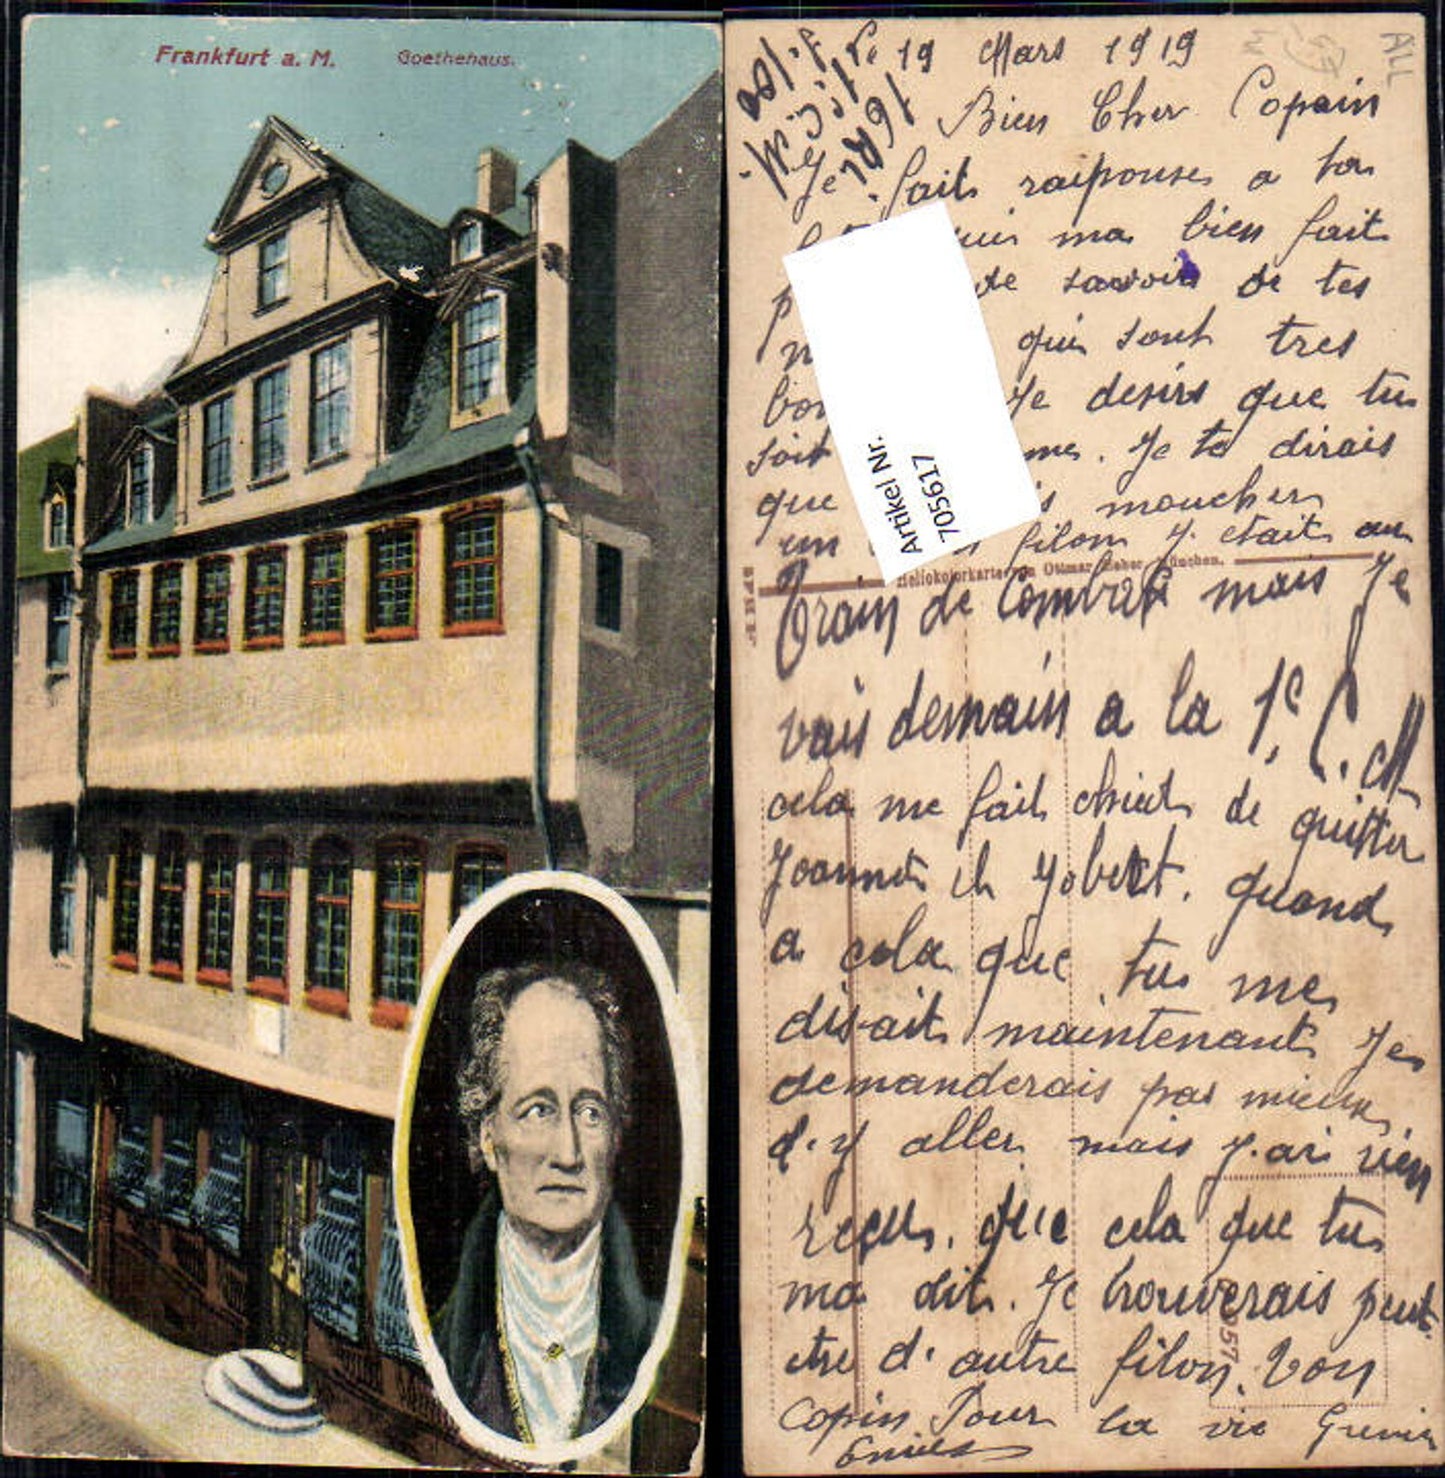 Frankfurt a. M. Goethehaus.
Le 19 Mars 1919
Bien Cher Copain
Je fait raiponse a ta
ma bien fait
de savoir de tes
qui sont tres
Je desire que tu
soit mes. Je te dirais
que moucher
un filon J. etait au
Heliokolorkarte von Ottmar Zieher, München.
Train de Combat mais Je
vais demain a la 1e C. M
cela me fait chier de quitter
Joannes et Jobert. quand
a cela que tu me
disait maintenant Je
demanderais pas mieux
d.y aller mais J.ai rien
reçu. que cela que tu
ma dit. Je trouverais peut
etre d'autre filon. Ton
Copin Pour la vie
Artikel Nr.
7056117
1e C. M.
16 R
ALL